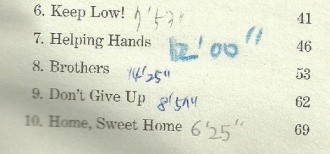 6. Keep Low! 7'53" 41
7. Helping Hands 12'00" 46
8. Brothers 14'25" 53
9. Don't Give Up 8'51" 62
10. Home, Sweet Home 6'25" 69